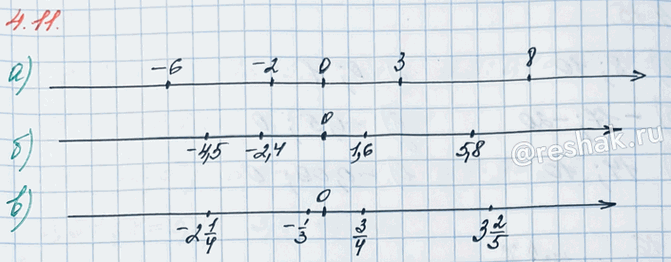 4.11.
а) -6 -2 0 3 8
0
б) -4,5 -2,4 1,6 5,8
@reshak.ru
0
в) -2 1/4 -1/3 3/4 3 2/5